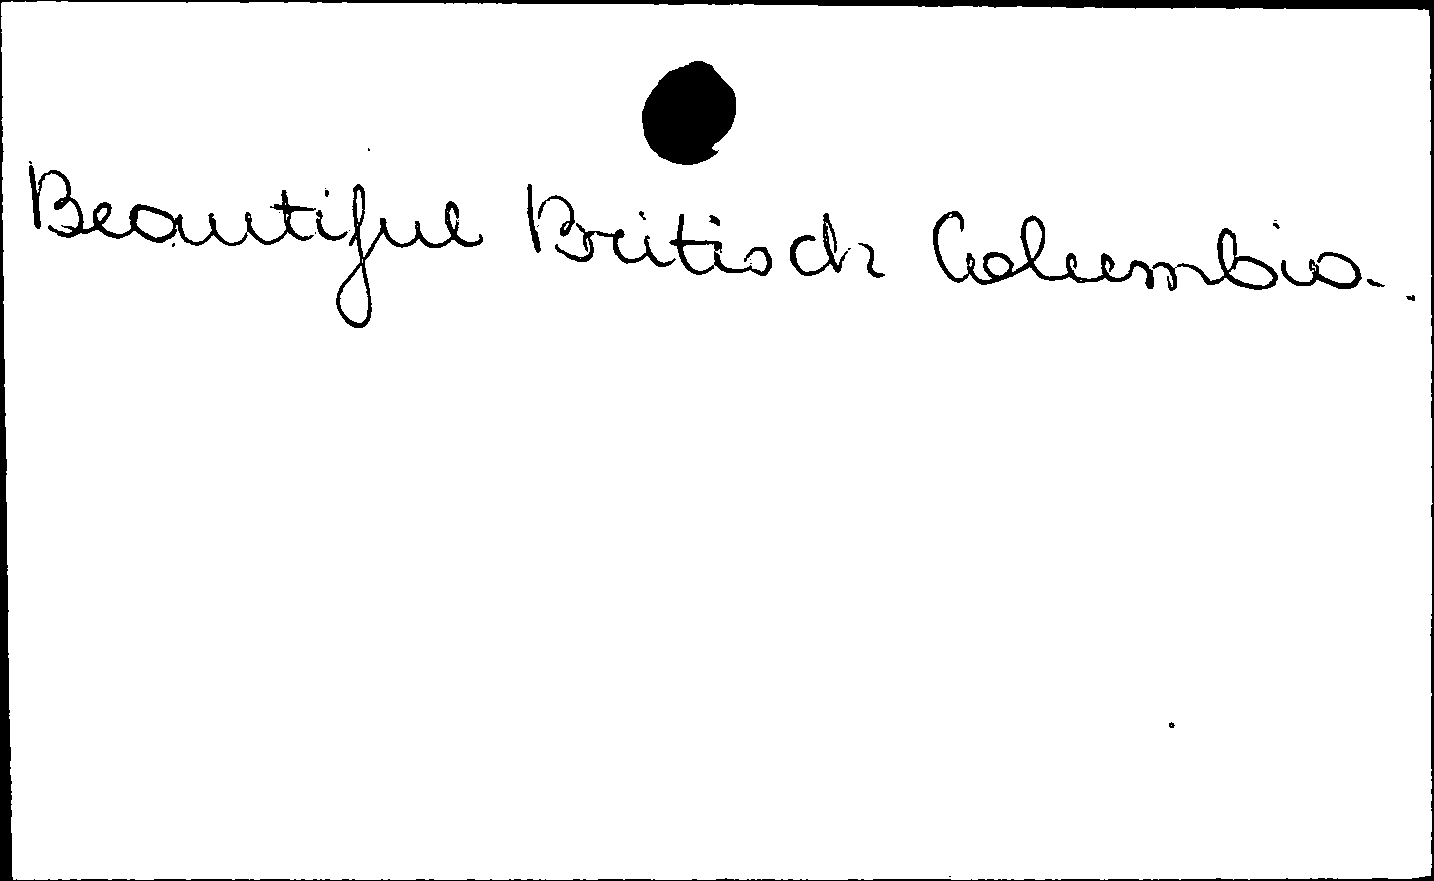 Beautiful Britisch Columbia.